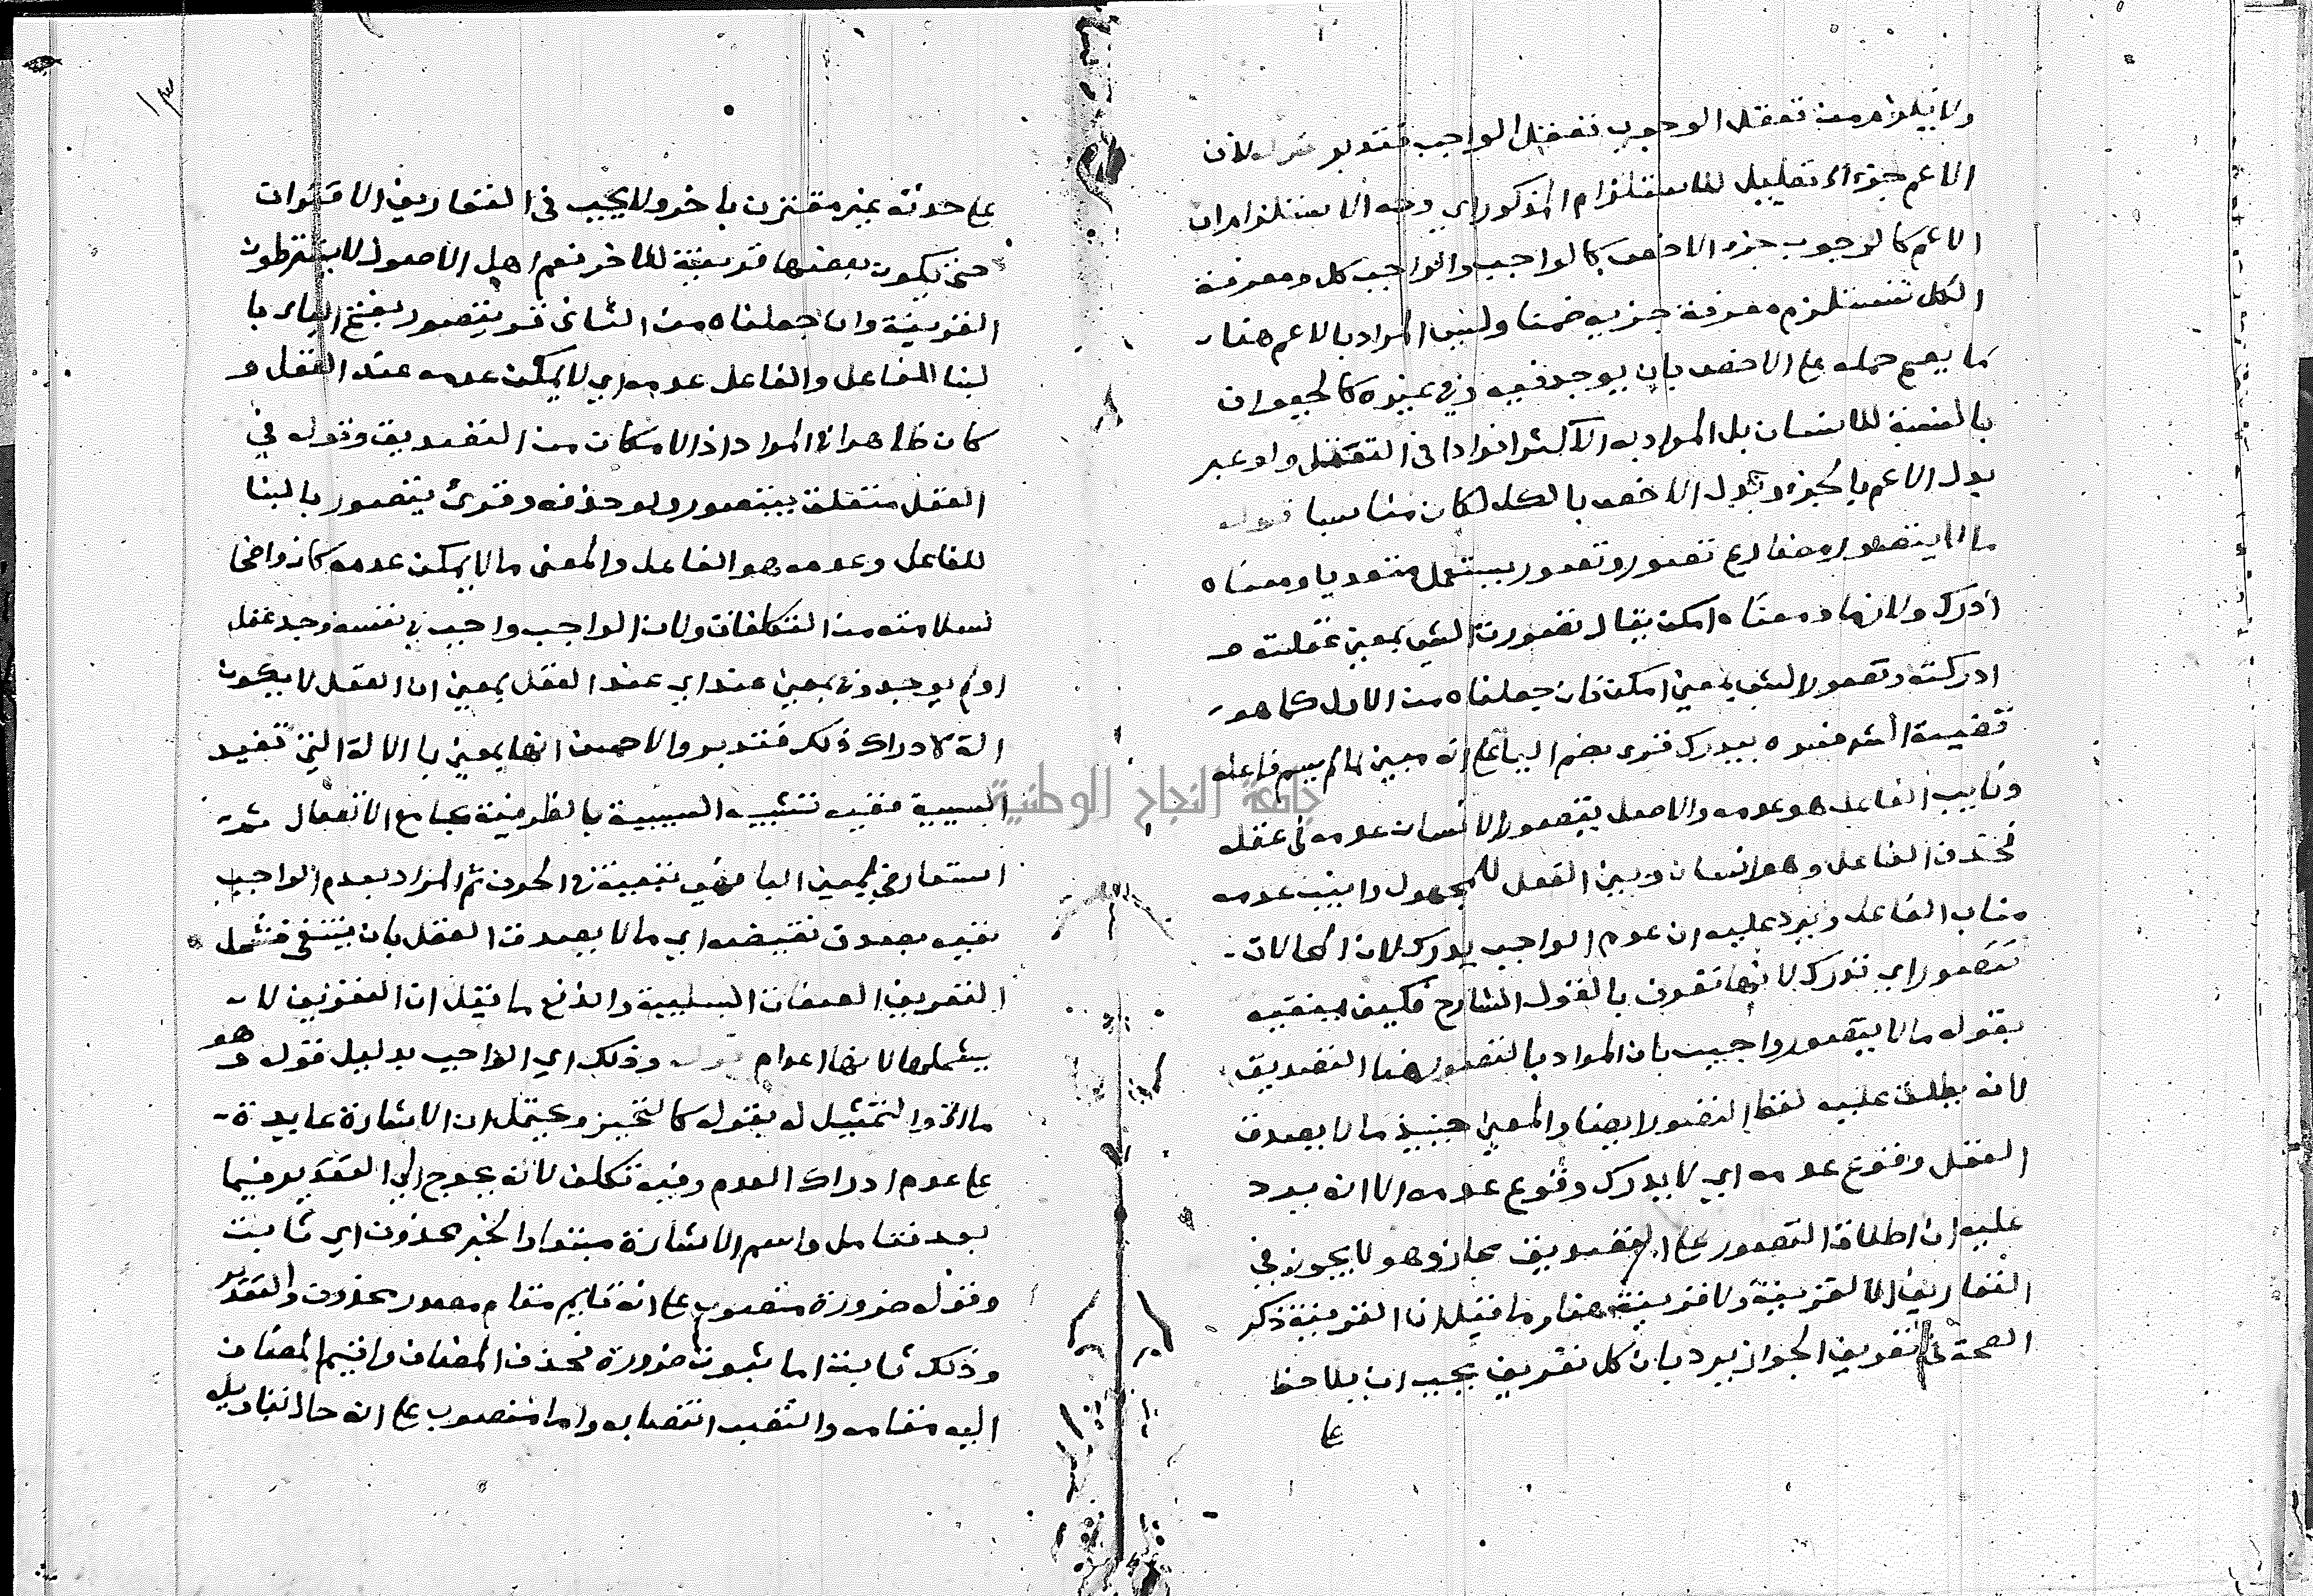 ولا يلزم من تعقل الوجوب تعقل الواجب فتدبر قوله لان
الاعم جزء الا تعليل للاستلزام المذكور اي وجه الاستلزام ان
الاعم كالوجوب جزء الاخص كالواجب والواجب كل ومعرفة
الكل تستلزم معرفة جزيه ضمنا وليس المراد بالاعم هنا
ما يصح حمله على الاخص بان يوجد فيه وفي غيره كالحيوان
بالنسبة للانسان بل المراد به الاكثر افرادا في التعقل ولو عبر
بدل الاعم بالجزء وبدل الاخص بالكل لكان مناسبا قوله
ما لا يتصور مضارع تصور وتصور يستعمل متعديا ومعناه
ادرك ولازما ومعناه امكن يقال تصورت الشي بمعنى عقلته و
ادركته وتصور الشي بمعنى امكن فان جعلناه من الاول كما هو
قضية الشم فسره بيدرك قرى بضم اليا على انه مبني لما لم يسم فاعله
ونايب الفاعل هو عدمه والاصل يتصور الانسان عدمه في عقله
فحذف الفاعل وهو انسان وبني الفعل للمجهول وانيب عدمه
مناب الفاعل ويرد عليه ان عدم الواجب يدرك لان المحالات
تتصور اي تدرك لانها تعرف بالقول الشارح فكيف ينفيه
بقوله ما لا يتصور واجيب بان المراد بالتصور هنا التصديق
لانه يطلق عليه لفظ التصور ايضا والمعنى حينيذ ما لا يصدق
العقل وقوع عدمه اي لا يدرك وقوع عدمه الا انه يرد
عليه ان اطلاق التصور على التصديق مجاز وهو لا يجوز في
التعاريف الا لقرينة ولا قرينة هنا وما قيل ان القرينة ذكر
الصحة في تعريف الجواز يرد بان كل تعريف يجب ان يلاحظ
على
على حدته غير مقترن باخر ولا يجب في التعاريف الاقتران
حتى يكون بعضها قرينة للاخر نعم اهل الاصول لا يشترطون
القرينة وان جعلناه من الثاني قرى يتصور بفتح الياء با
لبنا للفاعل والفاعل عدمه اي لا يمكن عدمه عند العقل و
كان ظاهرا المراد اذ الامكان من التصديق وقوله في
العقل متعلق بيتصور ولو حذفه وقرئ يتصور بالبنا
للفاعل وعدمه هو الفاعل والمعنى ما لا يمكن عدمه كان واضحا
لسلامته من التكلفات ولان الواجب واجب في نفسه وجد عقل
اولم يوجد وفي بمعنى عند اي عند العقل بمعنى ان العقل لا يكون
الة لادراك ذلك فتدبر والاحسن انها بمعنى با الالة التي تفيد
السببية ففيه تشبيه السببية بالظرفية بجامع الاتصال ثم
استعار في لمعنى البا فهي تبعية في الحرف ثم المراد بعدم الواجب
نفيه بصدق نقيضه اي ما لا يصدق العقل بان ينتفي فشمل
التعريف الصفات السلبية واندفع ما قيل ان التعريف لا
يشملها لانها اعدام قوله وذلك اي الواجب بدليل قوله وهو
ما اخ والتمثيل له بقوله كالتحيز ويحتمل ان الاشارة عايدة
على عدم ادراك العدم وفيه تكلف لانه يحوج الى التقدير فيما
بعد فتامل واسم الاشارة مبتدا والخبر محذوف اي ثابت
وقوله ضرورة منصوب على انه قايم مقام مصدر محذوف والتقدير
وذلك ثابت اما ثبوت ضرورة فحذف المضاف واقيم المضاف
اليه مقامه وانتصب انتصابه واما منصوب على انه حال بتاويله
جامعة النجاح الوطنية